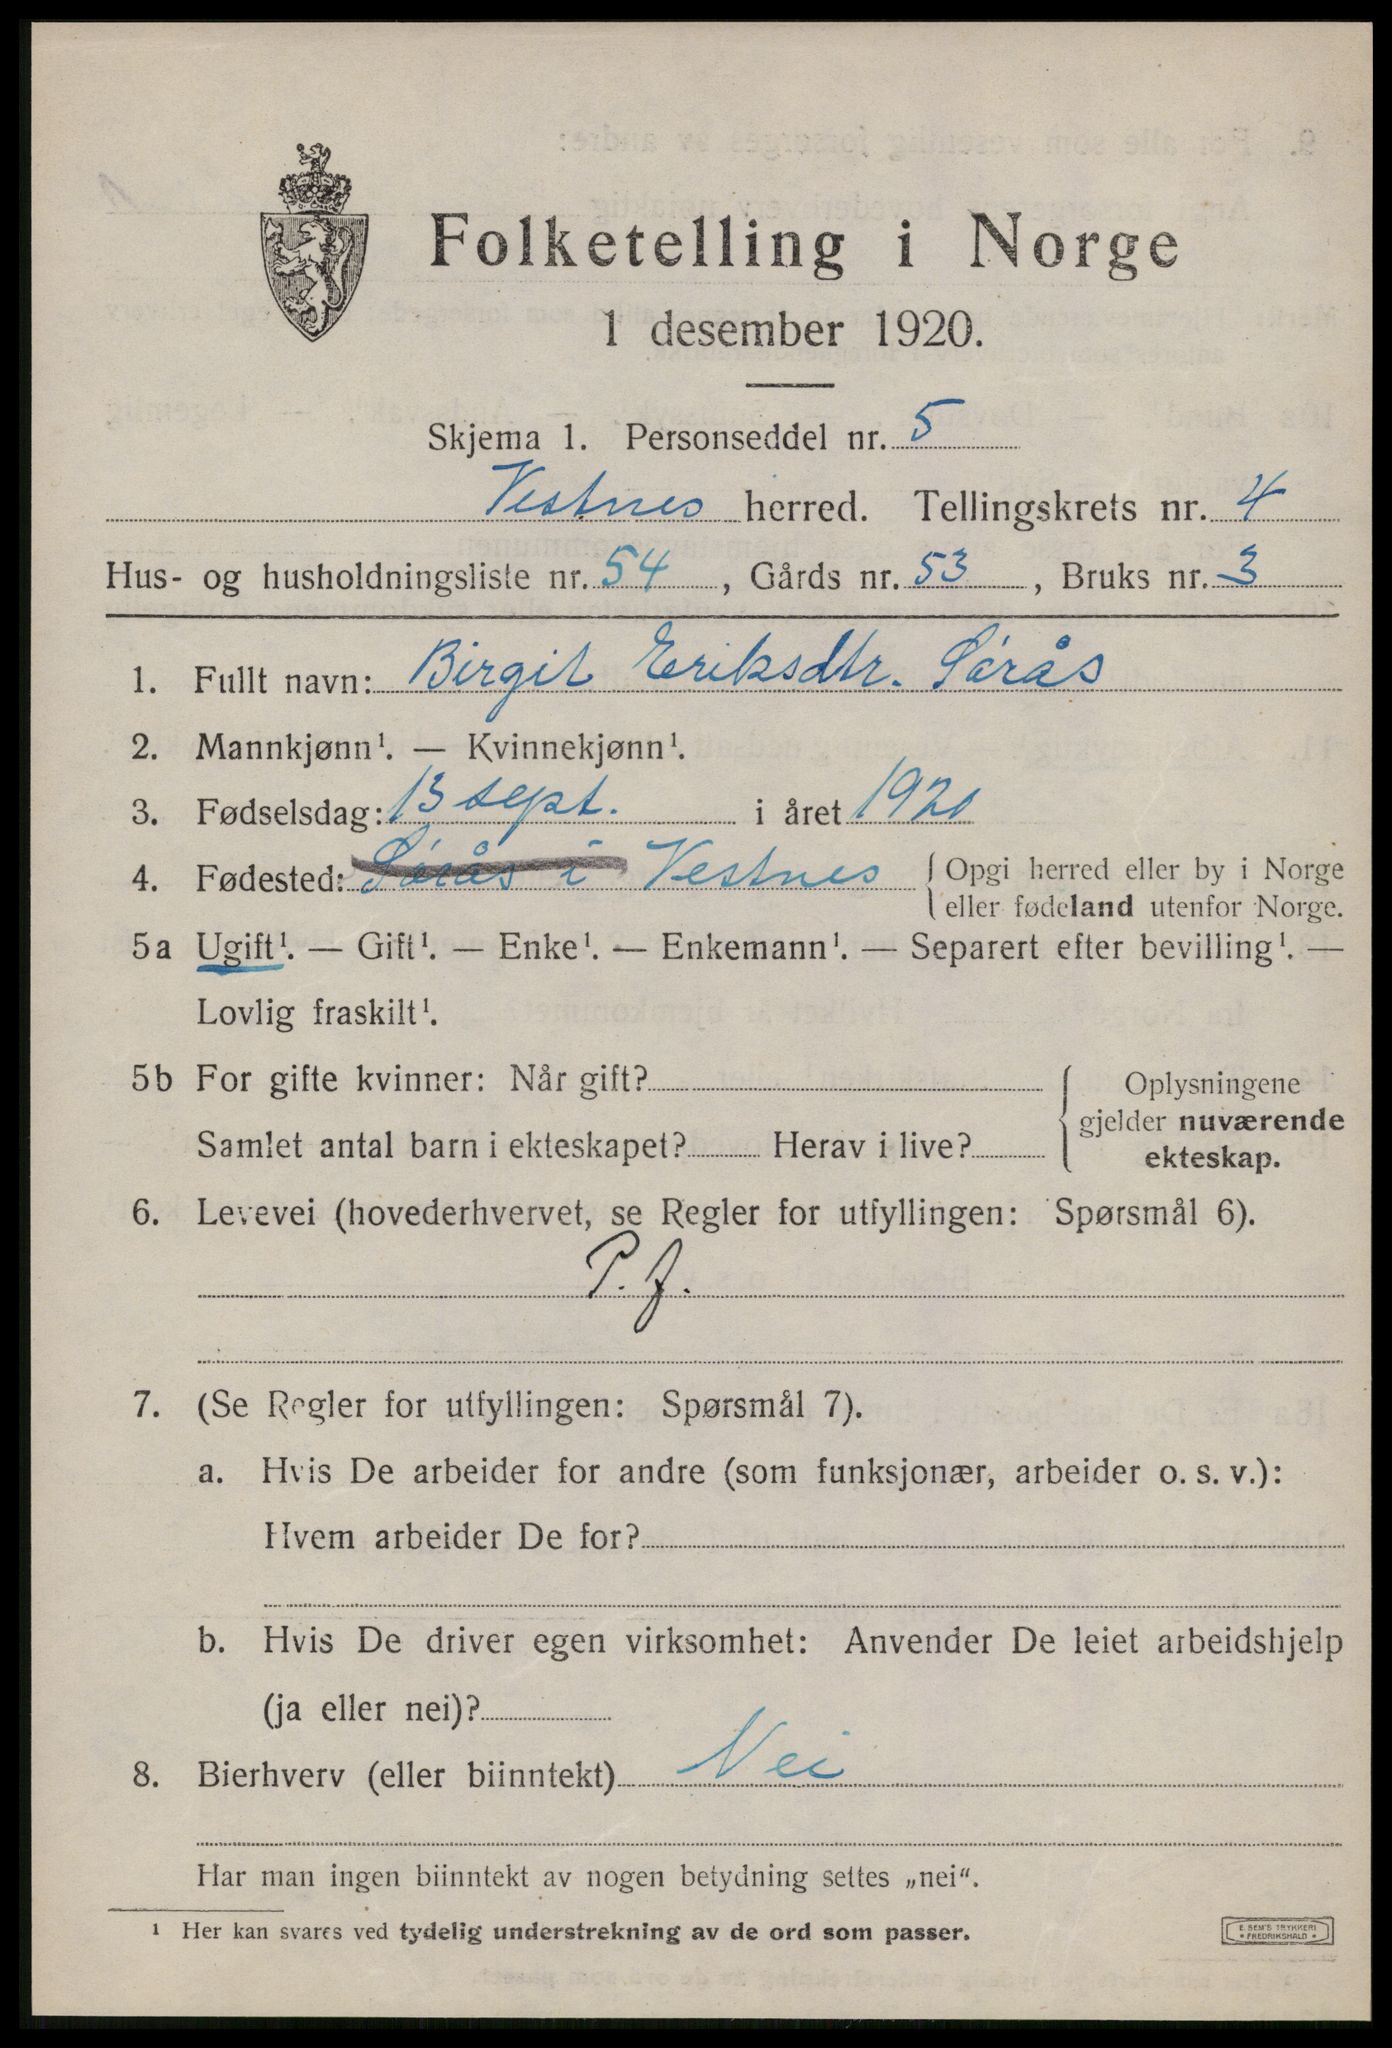 Folketelling i Norge
1 desember 1920.
Skjema 1. Personseddel nr. 5
Vestnes herred. Tellingskrets nr. 4
Hus- og husholdningsliste nr. 54, Gårds nr. 53, Bruks nr. 3
1. Fullt navn: Birgit Eriksdtr. Sørås
2. Mannkjønn¹. — Kvinnekjønn¹.
3. Fødselsdag: 13 sept. i året 1920
4. Fødested: Sørås i Vestnes { Opgi herred eller by i Norge
eller fødeland utenfor Norge.
5a Ugift¹. — Gift¹. — Enke¹. — Enkemann¹. — Separert efter bevilling¹. —
Lovlig fraskilt¹.
5b For gifte kvinner: Når gift?
Samlet antal barn i ekteskapet? Herav i live?
Oplysningene
gjelder nuværende
ekteskap.
6. Levevei (hovederhvervet, se Regler for utfyllingen: Spørsmål 6).
P. f.
7. (Se Regler for utfyllingen: Spørsmål 7).
a. Hvis De arbeider for andre (som funksjonær, arbeider o. s. v.):
Hvem arbeider De for?
b. Hvis De driver egen virksomhet: Anvender De leiet arbeidshjelp
(ja eller nei)?
8. Bierhverv (eller biinntekt) Nei
Har man ingen biinntekt av nogen betydning settes „nei“.
¹ Her kan svares ved tydelig understrekning av de ord som passer.
E. SEM'S TRYKKERI
* FREDRIKSHALD *